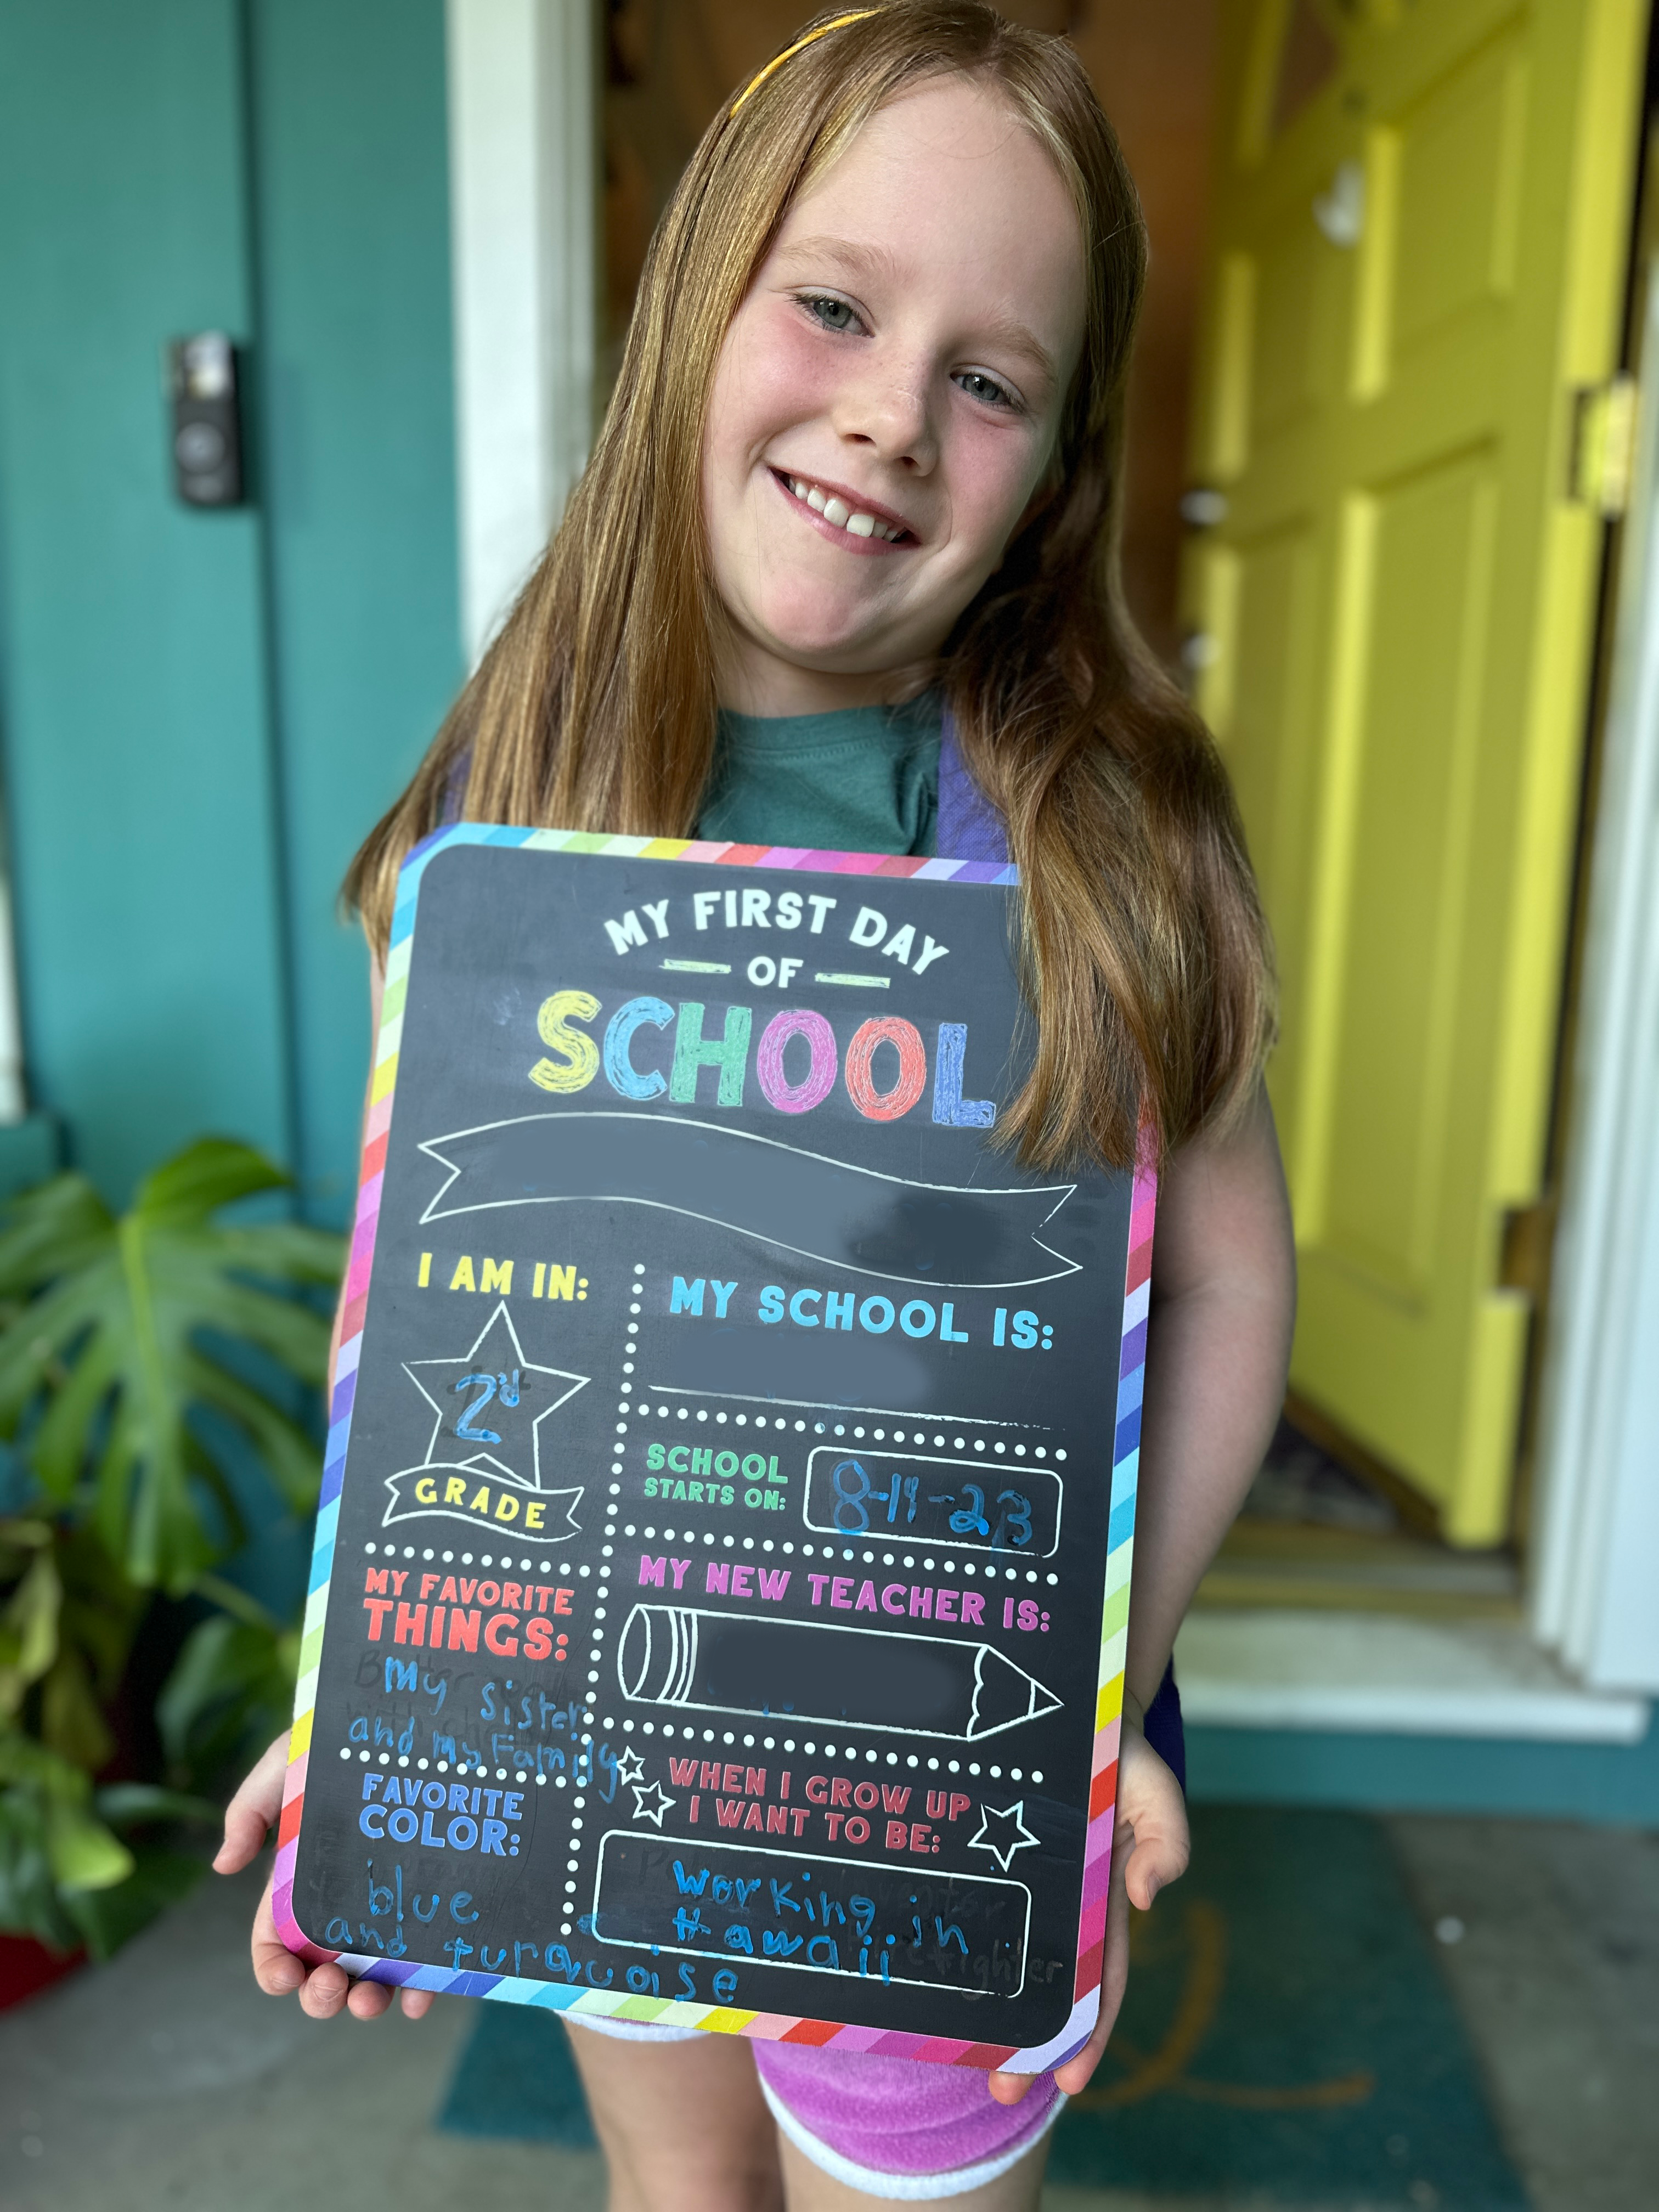 MY FIRST DAY
OF
SCHOOL
I AM IN:
2rd
GRADE
MY SCHOOL IS:
SCHOOL
STARTS ON:
8-14-23
MY FAVORITE
THINGS:
My sister
and my Family
MY NEW TEACHER IS:
FAVORITE
COLOR:
blue
and turquoise
WHEN I GROW UP
I WANT TO BE:
working in
Hawaii